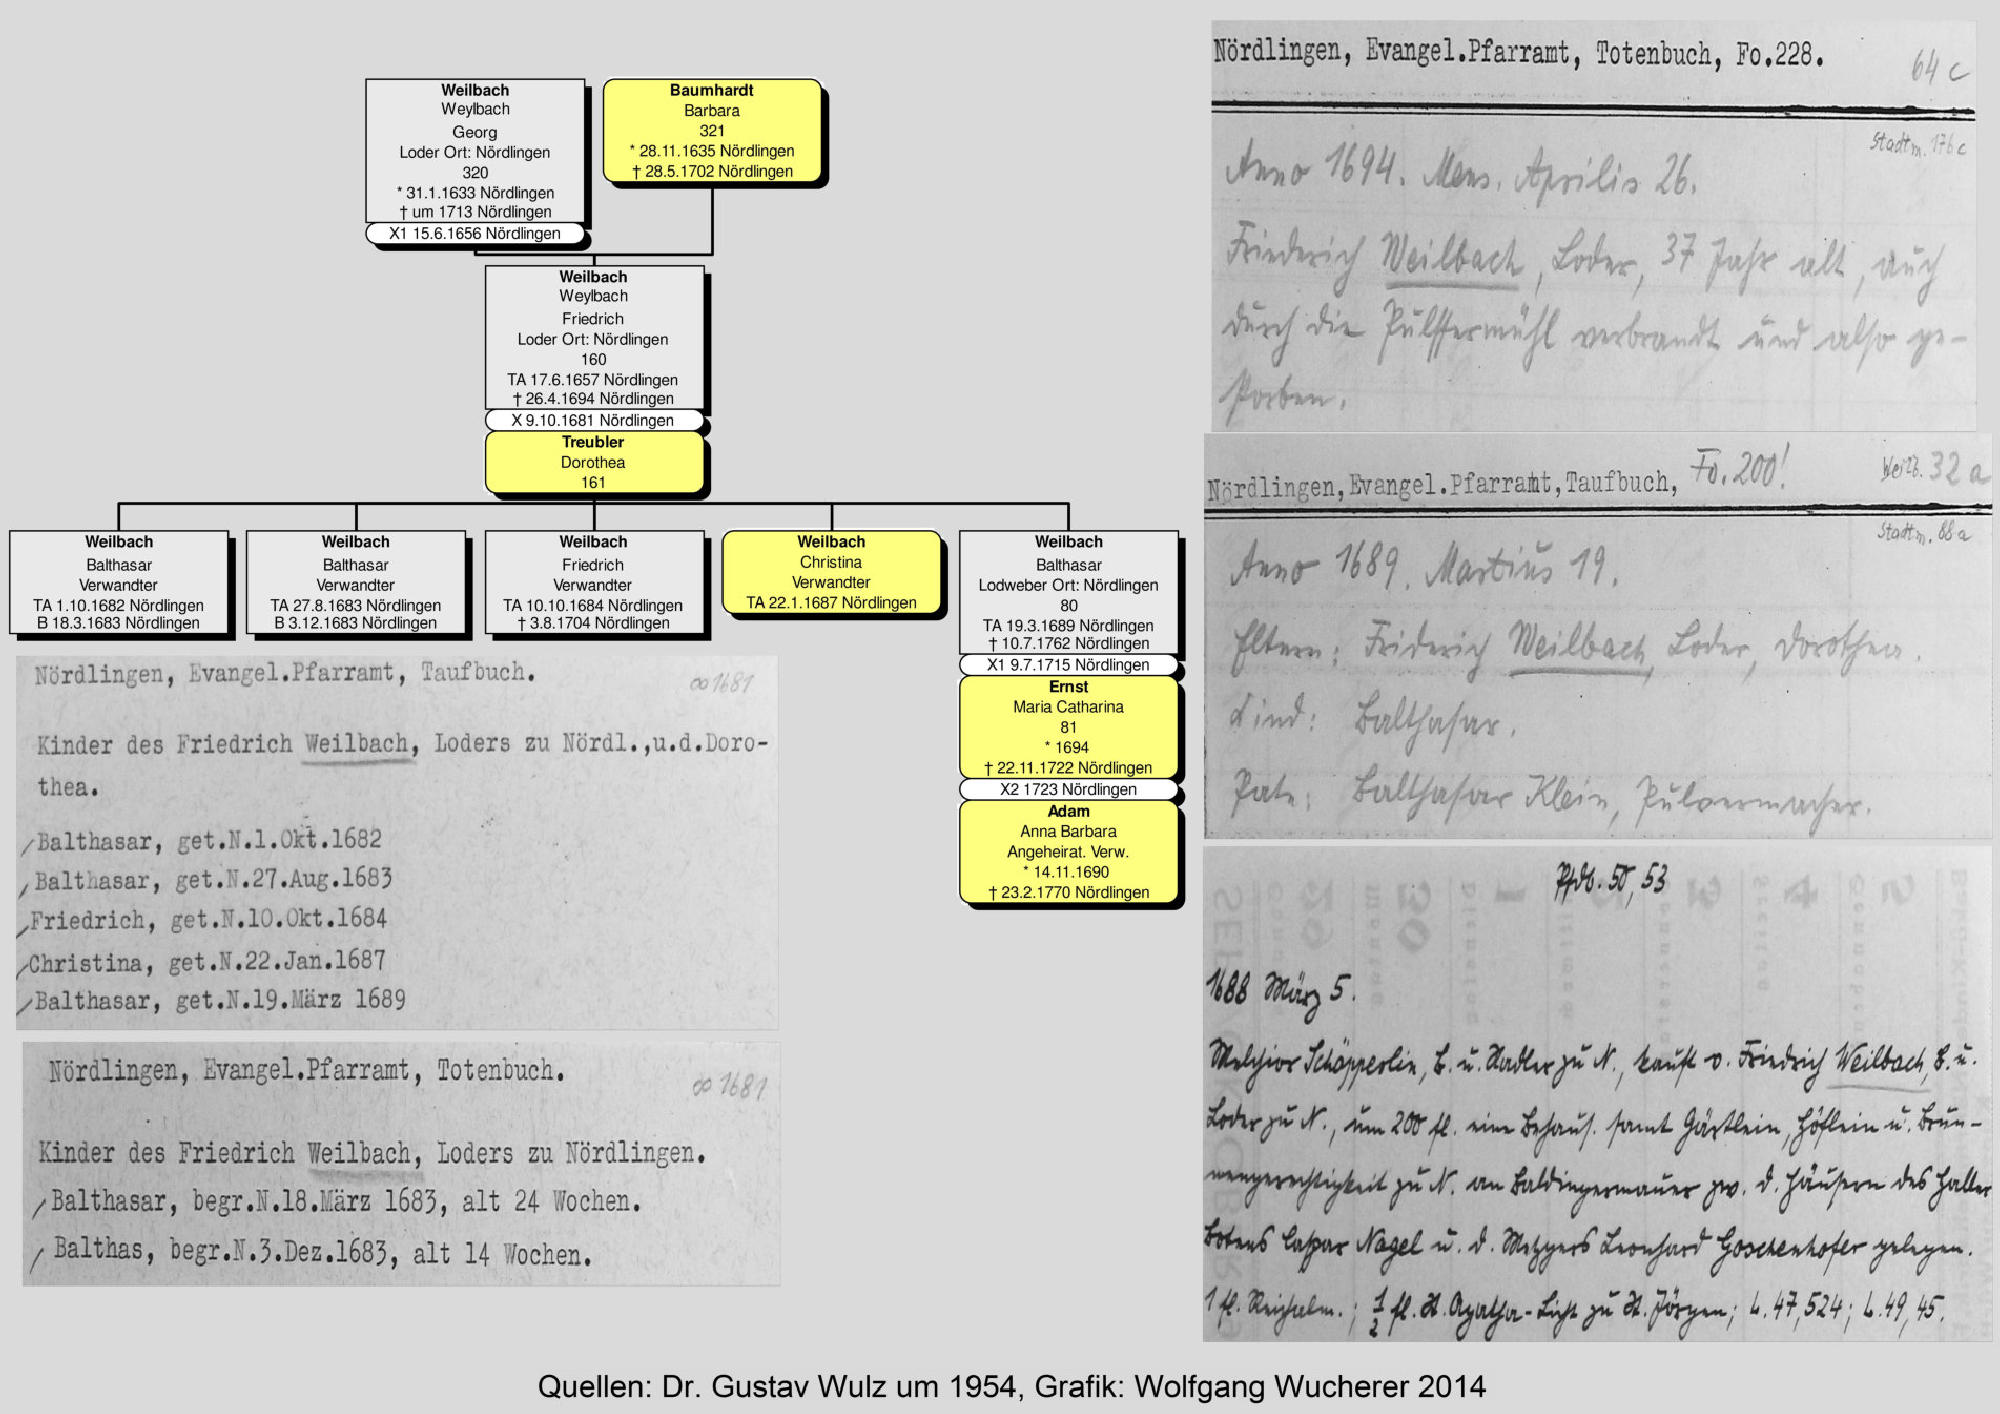 Weilbach
Weylbach
Georg
Loder Ort: Nördlingen
320
* 31.1.1633 Nördlingen
† um 1713 Nördlingen
X1 15.6.1656 Nördlingen
Baumhardt
Barbara
321
* 28.11.1635 Nördlingen
† 28.5.1702 Nördlingen
Weilbach
Weylbach
Friedrich
Loder Ort: Nördlingen
160
TA 17.6.1657 Nördlingen
† 26.4.1694 Nördlingen
X 9.10.1681 Nördlingen
Treubler
Dorothea
161
Weilbach
Balthasar
Verwandter
TA 1.10.1682 Nördlingen
B 18.3.1683 Nördlingen
Weilbach
Balthasar
Verwandter
TA 27.8.1683 Nördlingen
B 3.12.1683 Nördlingen
Weilbach
Friedrich
Verwandter
TA 10.10.1684 Nördlingen
† 3.8.1704 Nördlingen
Weilbach
Christina
Verwandter
TA 22.1.1687 Nördlingen
Weilbach
Balthasar
Lodweber Ort: Nördlingen
80
TA 19.3.1689 Nördlingen
† 10.7.1762 Nördlingen
X1 9.7.1715 Nördlingen
Ernst
Maria Catharina
81
* 1694
† 22.11.1722 Nördlingen
X2 1723 Nördlingen
Adam
Anna Barbara
Angeheirat. Verw.
* 14.11.1690
† 23.2.1770 Nördlingen
Nördlingen, Evangel.Pfarramt, Taufbuch.
∞ 1681
Kinder des Friedrich Weilbach, Loders zu Nördl.,u.d.Doro-
thea.
Balthasar, get.N.1.Okt.1682
Balthasar, get.N.27.Aug.1683
Friedrich, get.N.10.Okt.1684
Christina, get.N.22.Jan.1687
Balthasar, get.N.19.März 1689
Nördlingen, Evangel.Pfarramt, Totenbuch.
∞ 1681
Kinder des Friedrich Weilbach, Loders zu Nördlingen.
Balthasar, begr.N.18.März 1683, alt 24 Wochen.
Balthas, begr.N.3.Dez.1683, alt 14 Wochen.
Nördlingen, Evangel.Pfarramt, Totenbuch, Fo.228.
64 c
Stadtm. 176 c
Anno 1694. Mens. Aprilis 26.
Friederich Weilbach, Loder, 37 Jahr alt, auch
durch die Pulffermühl verbrandt und also ge-
storben.
Nördlingen, Evangel.Pfarramt, Taufbuch, Fo. 200!
Weilb. 32 a
Stadtm. 88 a
Anno 1689. Martius 19.
Eltern: Friderich Weilbach, Loder, Dorothea.
Kind: Balthasar.
Pate: Balthasar Klein, Pulvermacher.
Pfdb. 50, 53
1688 März 5.
Melchior Schäpperlin, B. u. Nadler zu N., kauft v. Friedrich Weilbach, B. u.
Loder zu N., um 200 fl. eine Behaus. samt Gärtlein, Höflein u. Brun-
nengerechtigkeit zu N. an Baldingermauer zw. d. Häusern des Haller
Botens Caspar Nagel u. d. Metzgers Leonhard Goschenhofer gelegen.
1 fl. Reichsalm.; 1/2 fl. St. Agatha-Licht zu St. Jörgen; L. 47, 524; L. 49, 45.
Quellen: Dr. Gustav Wulz um 1954, Grafik: Wolfgang Wucherer 2014